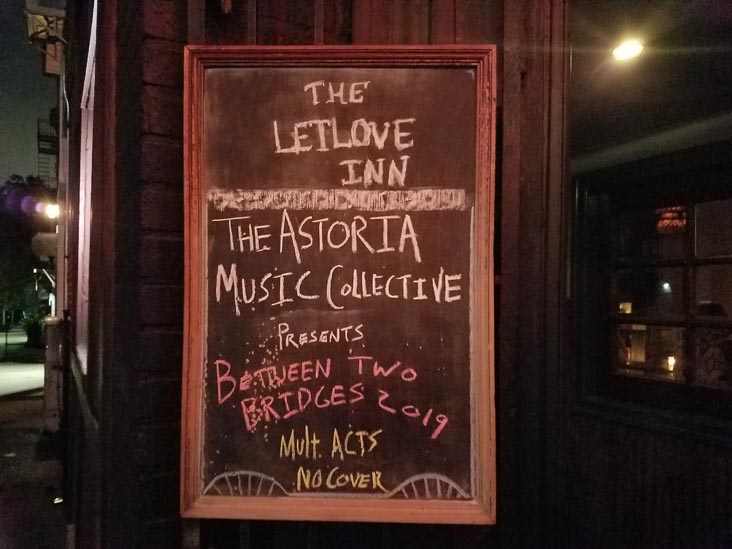 THE
LETLOVE
INN
THE ASTORIA
MUSIC COLLECTIVE
PRESENTS
BETWEEN TWO
BRIDGES 2019
MULT. ACTS
NO COVER